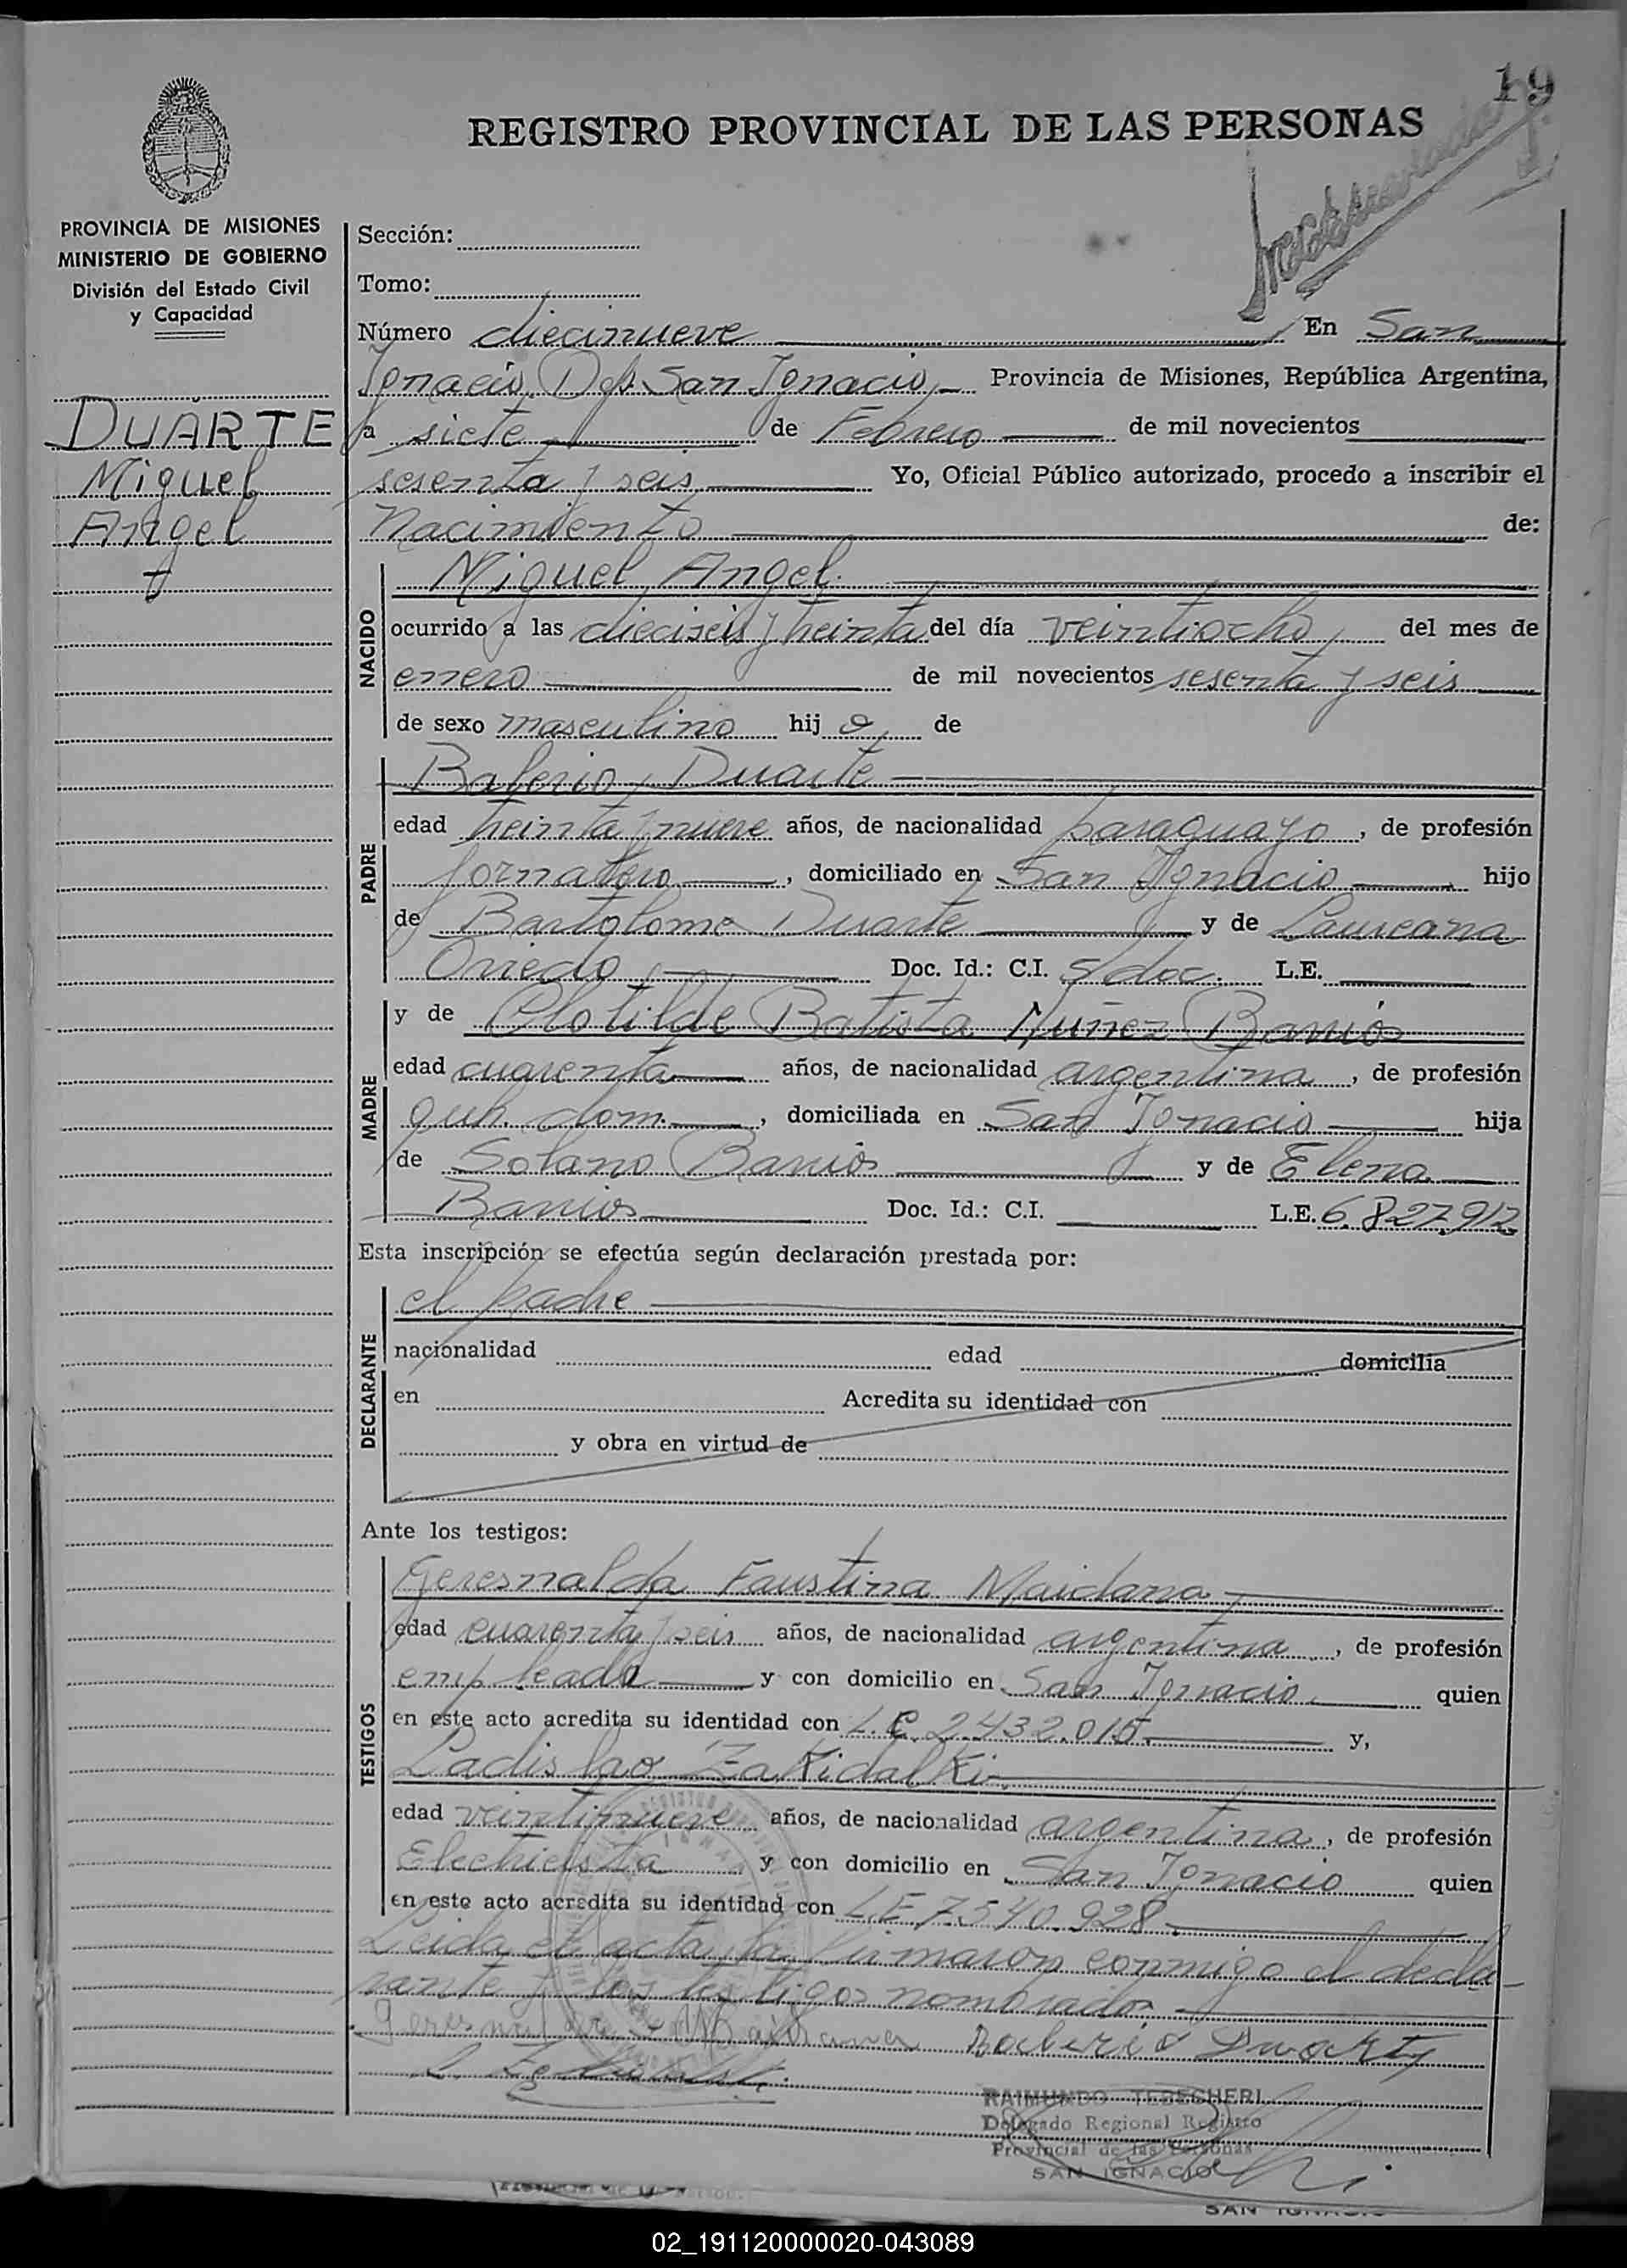 19
REGISTRO PROVINCIAL DE LAS PERSONAS
PROVINCIA DE MISIONES
MINISTERIO DE GOBIERNO
División del Estado Civil
y Capacidad
DUARTE
Miguel
Angel
Sección:
Tomo:
Número diecinueve En San
Ignacio, Dep. San Ignacio, Provincia de Misiones, República Argentina,
a siete de Febrero de mil novecientos
sesenta y seis Yo, Oficial Público autorizado, procedo a inscribir el
Nacimiento de:
NACIDO
Miguel Angel
ocurrido a las dieciseis y treinta del día veintiocho, del mes de
enero de mil novecientos sesenta y seis
de sexo masculino hij o, de
PADRE
Balerio, Duarte
edad treinta y nueve años, de nacionalidad paraguayo, de profesión
jornalero, domiciliado en San Ignacio hijo
de Bartolome Duarte y de Laureana
Oviedo, Doc. Id.: C.I. s/doc. L.E.
MADRE
y de Clotilde Batista Nuñez Barrios
edad cuarenta años, de nacionalidad argentina, de profesión
queh. dom., domiciliada en San Ignacio hija
de Solano Barrios y de Elena
Barrios Doc. Id.: C.I. L.E. 6.827.912
Esta inscripción se efectúa según declaración prestada por:
DECLARANTE
el padre
nacionalidad edad domicilia
en Acredita su identidad con
y obra en virtud de
Ante los testigos:
TESTIGOS
Geresnalda Faustina Maidana
edad cuarenta y seis años, de nacionalidad argentina, de profesión
empleada y con domicilio en San Ignacio quien
en este acto acredita su identidad con L.C. 2.432.015 y,
Ladislao Zakidalki
edad veintinueve años, de nacionalidad argentina, de profesión
Electricista y con domicilio en San Ignacio quien
en este acto acredita su identidad con L.E 7.540.928
Leida el acta, la firmaron conmigo el decla-
rante y los testigos nombrados
Maidana Balerio Duarte
RAIMUNDO TEBEGHERI
Delegado Regional Registro
Provincial de las Personas
SAN IGNACIO
SAN IGNACIO
02_191120000020-043089